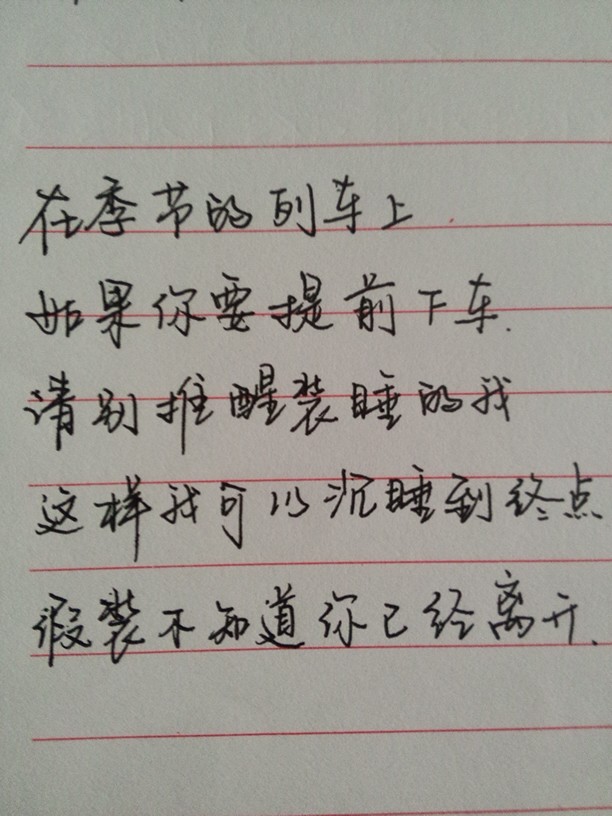 在季节的列车上
如果你要提前下车.
请别推醒装睡的我
这样我可以沉睡到终点
假装不知道你已经离开.